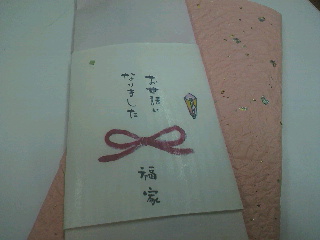 お世話に
なりました
福家